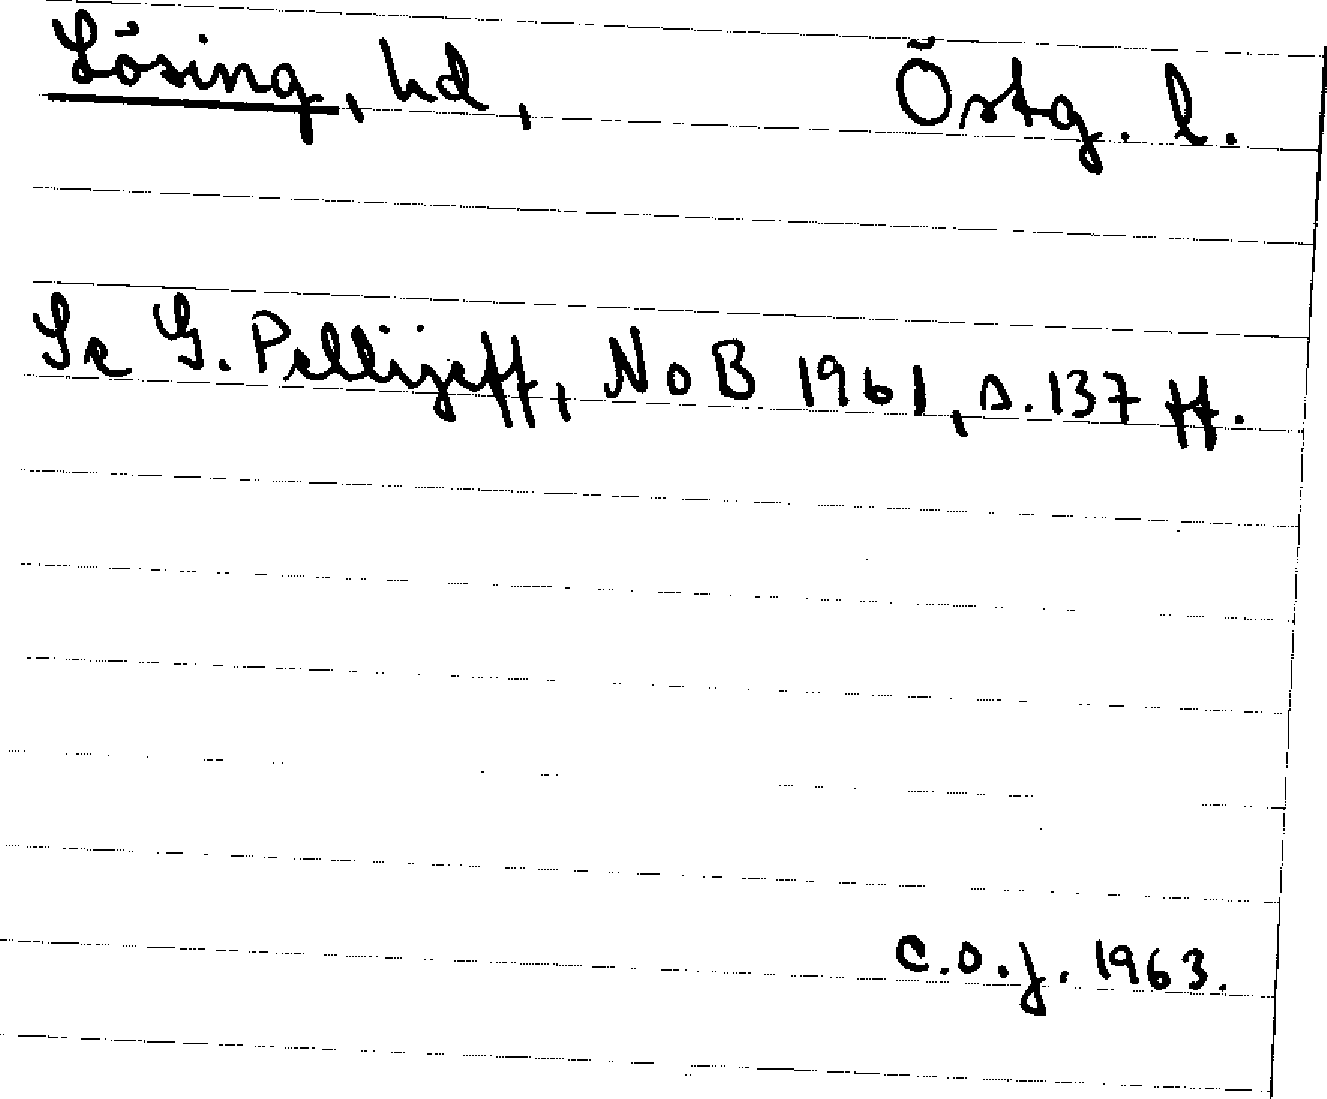 Lösing, hd, Östg. l.
Se G. Pellijeff, NoB 1961, s. 137 ff.
C.O.J. 1963.